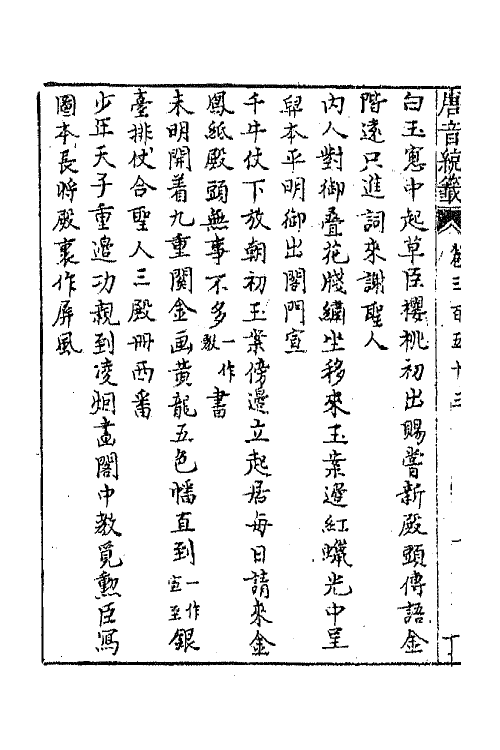 唐音統籤 卷三百五十三
白玉窓中起草臣櫻桃初出賜嘗新殿頭傳語金
階遠只進詞來謝聖人
內人對御疊花牋繡坐移來玉案邊紅蠟光中呈
艸本平明御出閣門宣
千牛仗下放朝初玉案傍邊立起居每日請來金
鳳紙殿頭無事不多一作敎書
未明開着九重關金画黄龍五色幡直到一作宣至銀
臺排仗合聖人三殿冊西番
少年天子重邉功親到凌烟畫閣中教覓勲臣寫
圖本長將殿裏作屏風